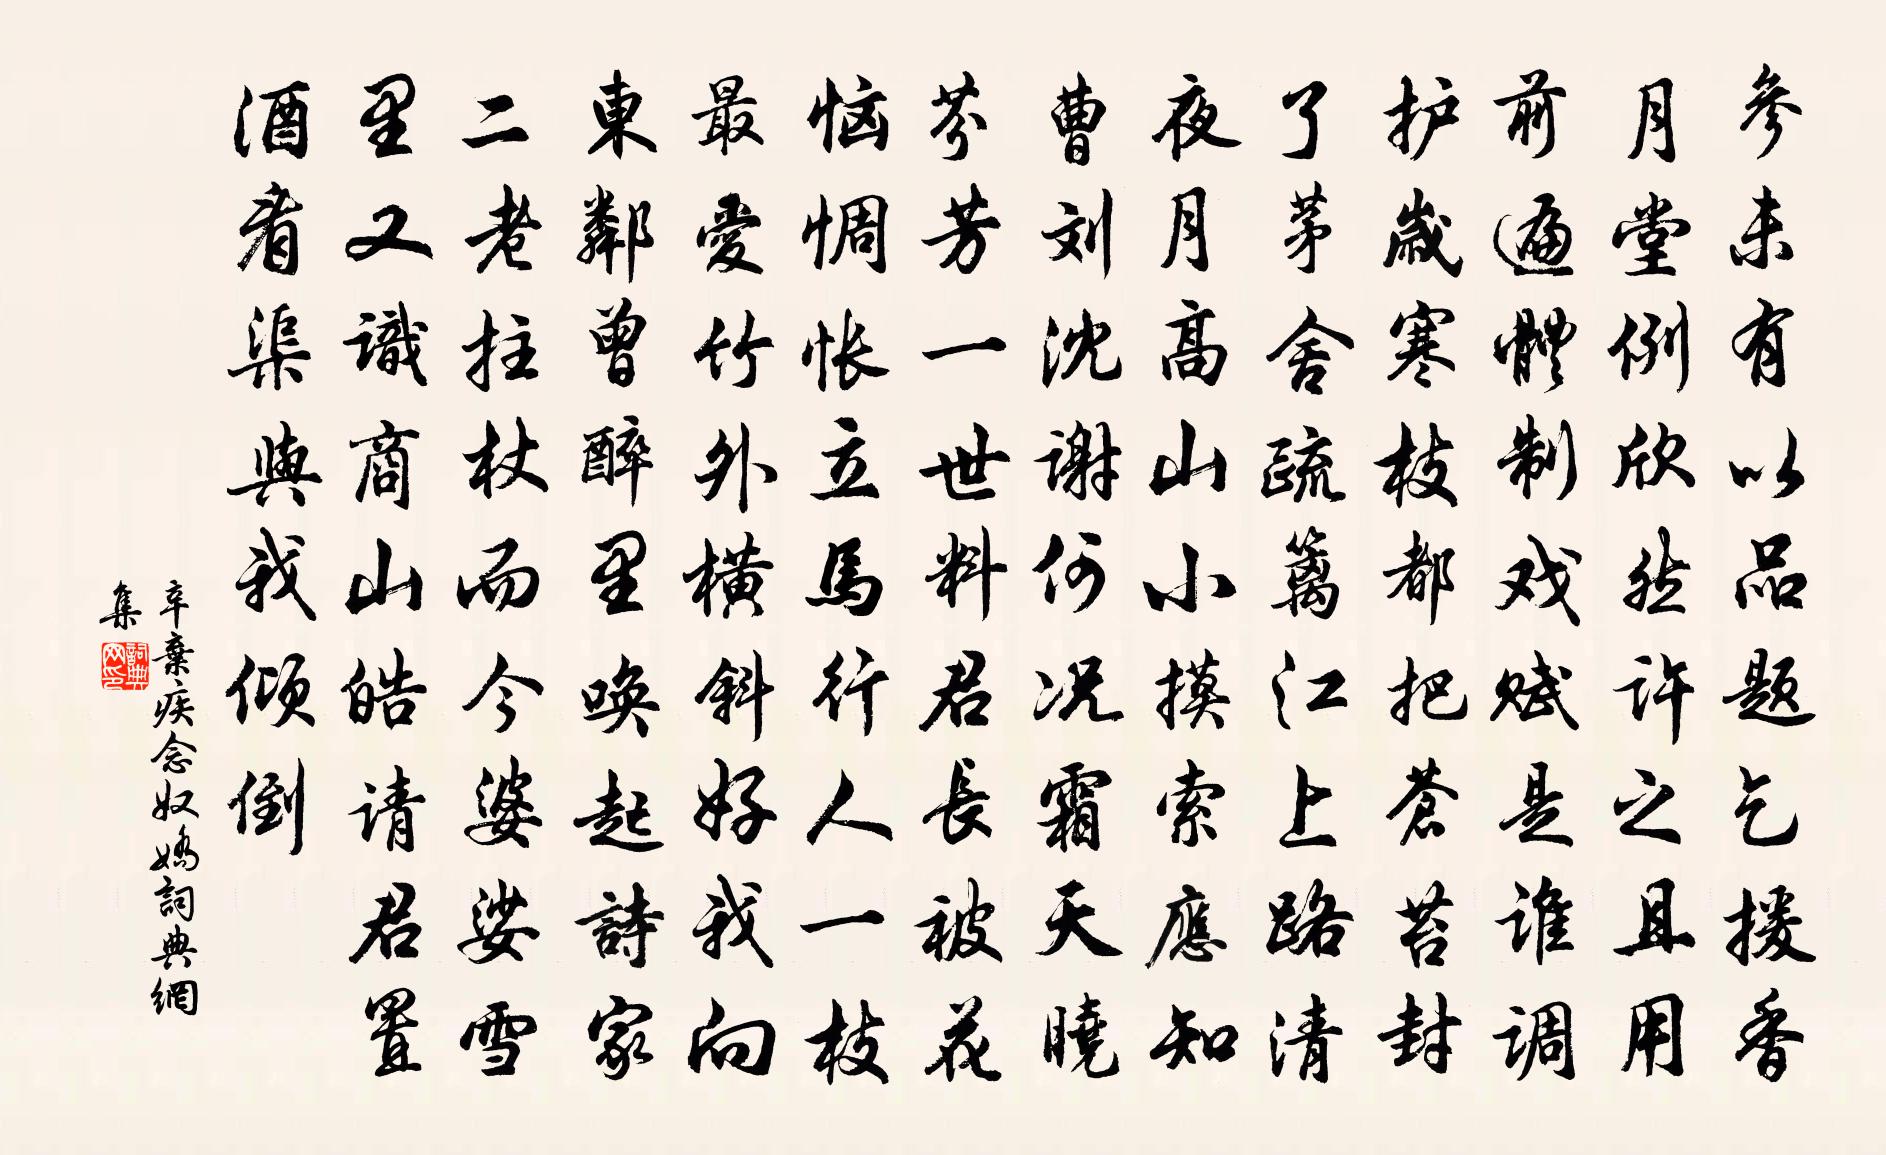 參未有以品题乞援香
月堂例欣然许之且用
前遍體制戏赋是谁调
护歲寒枝都把蒼苔封
了茅舍疏篱江上路清
夜月高山小摸索應知
曹刘沈谢何况霜天曉
芬芳一世料君長被花
恼惆怅立馬行人一枝
最愛竹外横斜好我向
東鄰曾醉里唤起詩家
二老拄杖而今婆娑雪
里又識商山皓请君置
酒看渠與我倾倒
辛棄疾念奴嬌詞典網
集
詞典网印